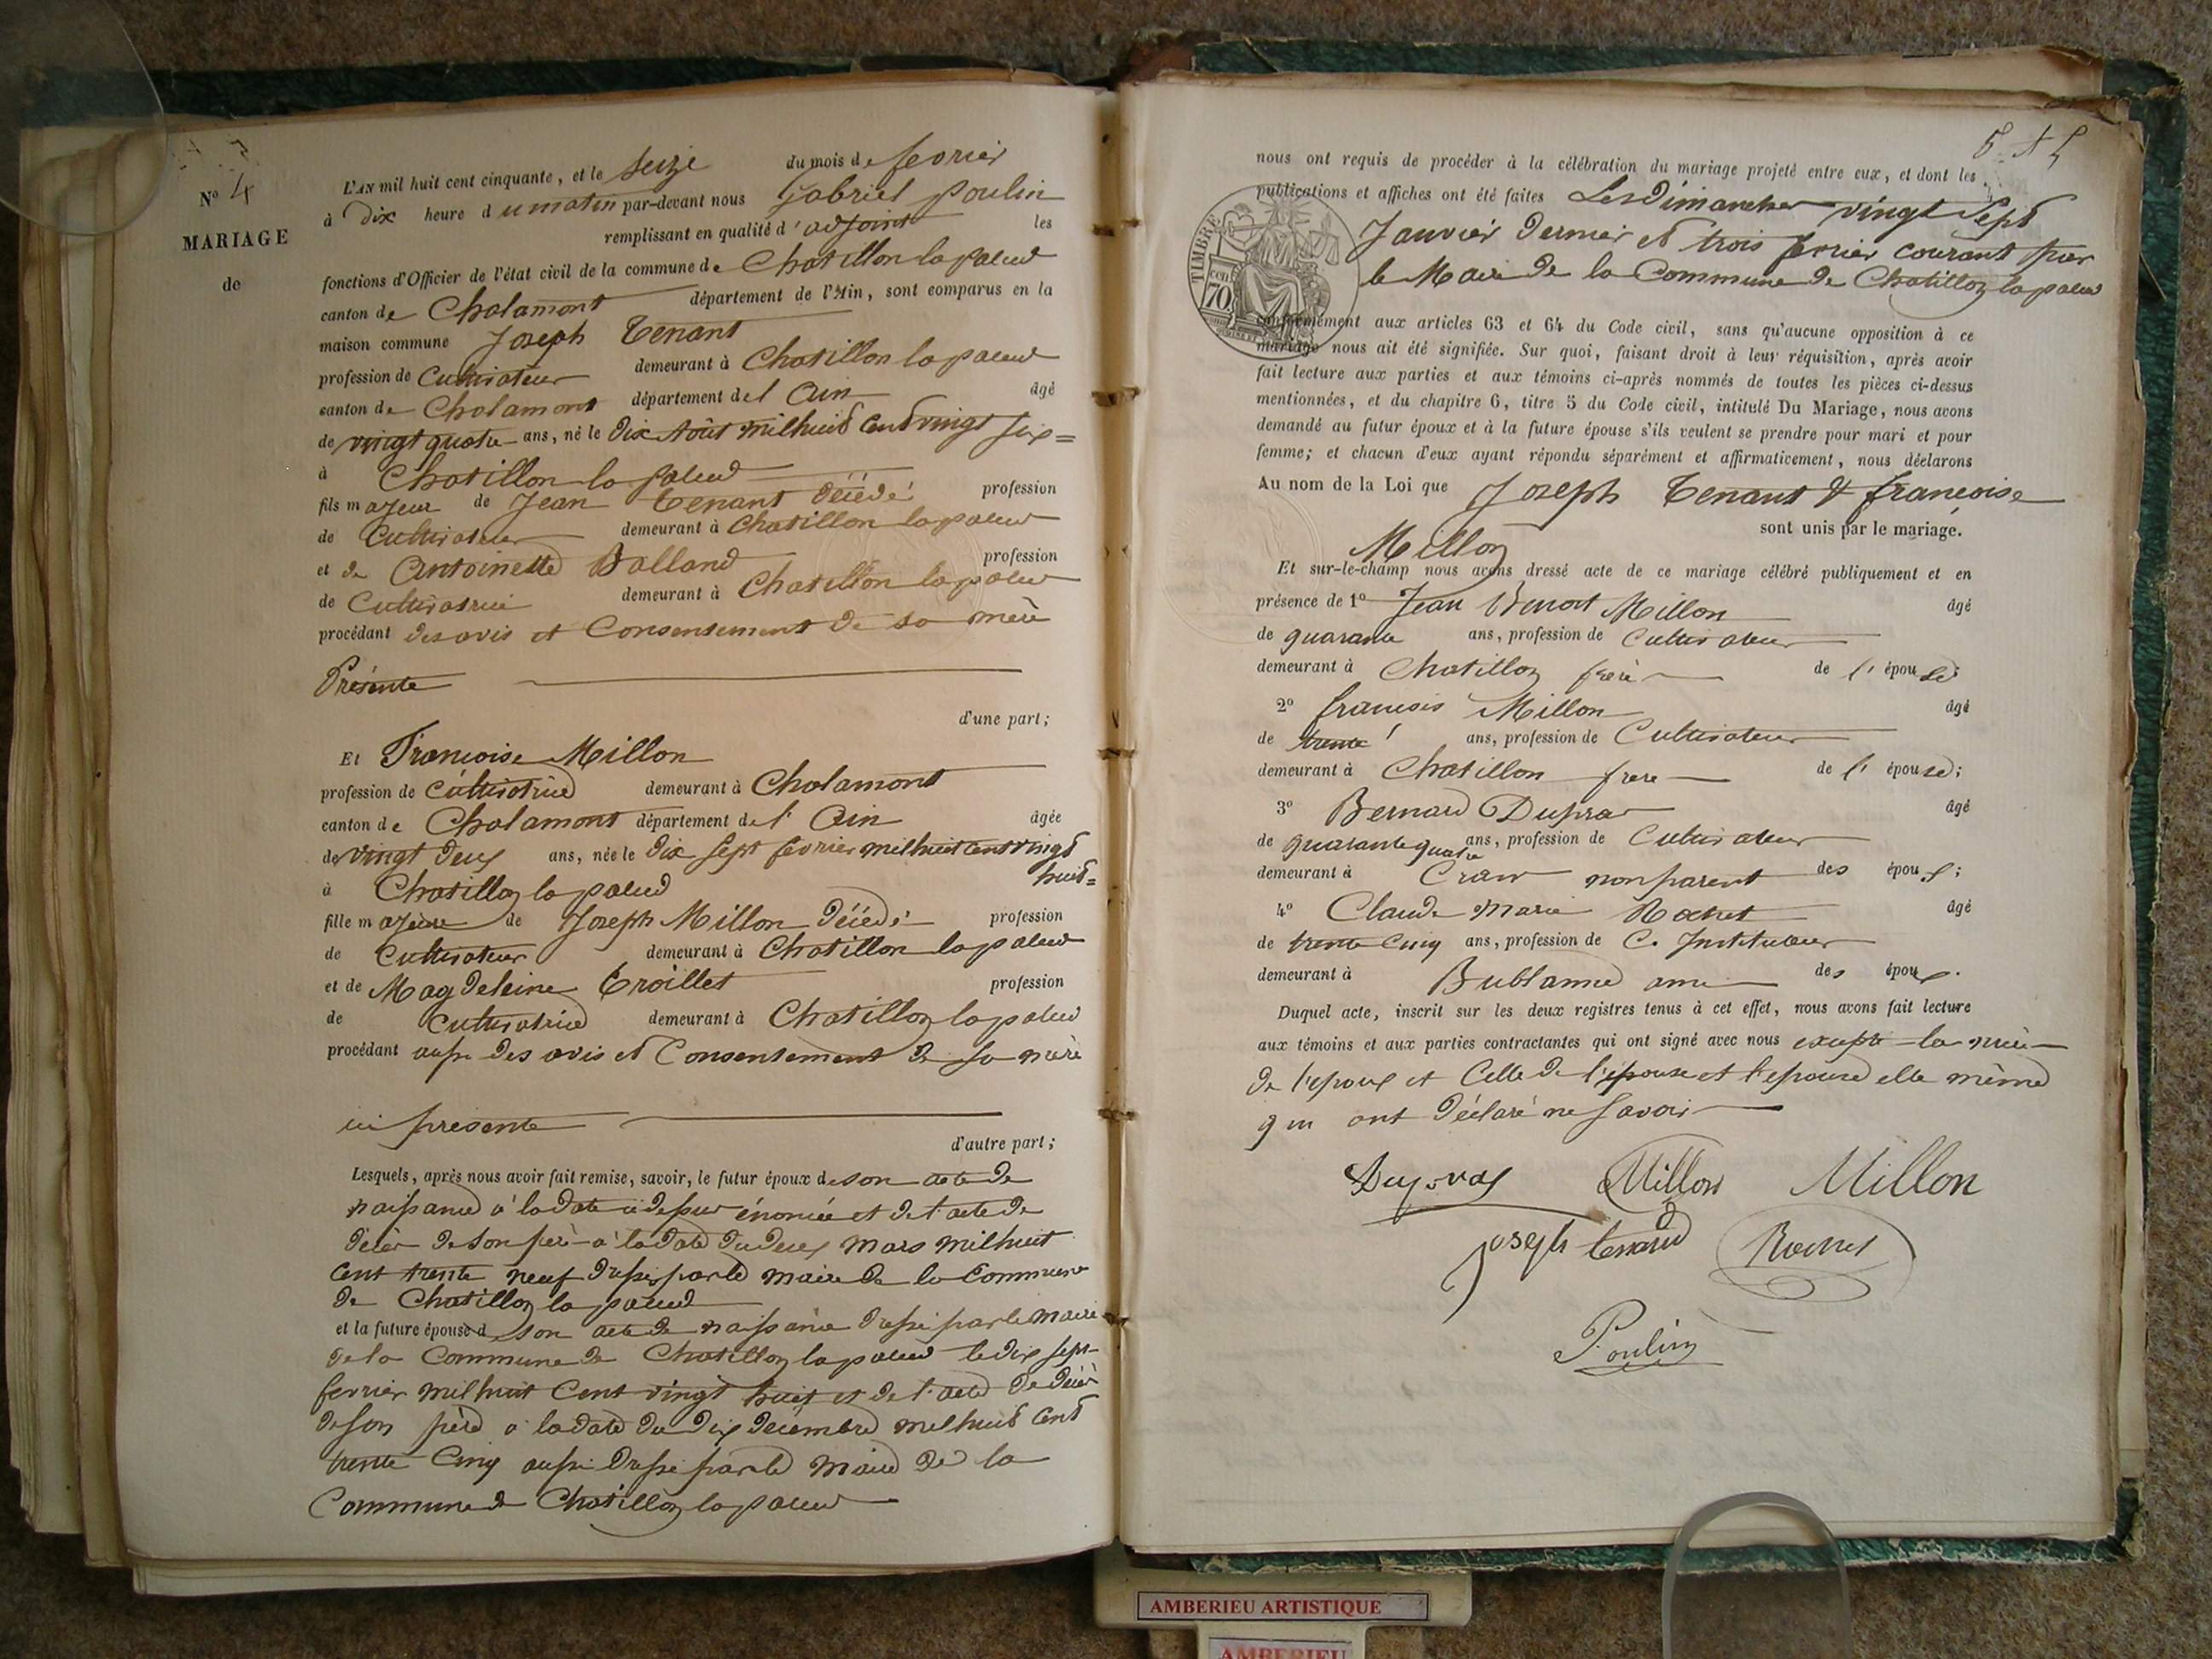 N° 4
MARIAGE
de
L'AN mil huit cent cinquante, et le seize du mois de fevrier
à Dix heure du matin par-devant nous Gabriel Poulin
remplissant en qualité d'adjoint les
fonctions d'Officier de l'état civil de la commune de Chatillon lapalud
canton de Chalamont département de l'Ain, sont comparus en la
maison commune Joseph Tenant
profession de Cultivateur demeurant à Chatillon lapalud
canton de Chalamont département de l'Ain âgé
de vingt quatre ans, né le Dix Août mil huit Cent vingt six =
à Chatillon la palud
fils majeur de Jean Tenant Décédé profession
de Cultivateur demeurant à Chatillon lapalud
et de Antoinette Balland profession
de Cultivatrice demeurant à Chatillon lapalud
procédant des avis et Consentement de sa mère
Présente
d'une part;
Et Françoise Millon
profession de Cultivatrice demeurant à Chalamont
canton de Chalamont département de l'Ain âgée
de vingt Deux ans, née le Dix sept fevrier mil huit cent vingt
huit =
à Chatillon lapalud
fille majeure de Joseph Millon Décédé profession
de Cultivateur demeurant à Chatillon lapalud
et de Magdeleine Troillet profession
de Cultivatrice demeurant à Chatillon lapalud
procédant aussi des avis et Consentement de sa mère
ici presente
d'autre part;
Lesquels, après nous avoir fait remise, savoir, le futur époux de son acte de
naissance à la date ci dessus énoncée et de l'acte de
décès de son père à la date du deux mars mil huit
Cent trente neuf dressé par le maire de la Commune
de Chatillon lapalud
et la future épouse de son acte de naissance dressé par le maire
de la Commune de Chatillon lapalud le dix sept
fevrier mil huit Cent vingt huit et de l'acte de décès
de son père à la date du dix décembre mil huit Cent
trente Cinq aussi dressé par le maire de la
Commune de Chatillon lapalud
nous ont requis de procéder à la célébration du mariage projeté entre eux, et dont les
publications et affiches ont été faites Les Dimanches vingt sept
Janvier dernier et trois fevrier courant par
le Maire de la Commune de Chatillon lapalud
TIMBRE
cen
70
conformément aux articles 63 et 64 du Code civil, sans qu'aucune opposition à ce
mariage nous ait été signifiée. Sur quoi, faisant droit à leur réquisition, après avoir
fait lecture aux parties et aux témoins ci-après nommés de toutes les pièces ci-dessus
mentionnées, et du chapitre 6, titre 5 du Code civil, intitulé Du Mariage, nous avons
demandé au futur époux et à la future épouse s'ils veulent se prendre pour mari et pour
femme; et chacun d'eux ayant répondu séparément et affirmativement, nous déclarons
Au nom de la Loi que Joseph Tenant & françoise
sont unis par le mariage.
Millon
Et sur-le-champ nous avons dressé acte de ce mariage célébré publiquement et en
présence de 1° Jean Benoit Millon âgé
de quarante ans, profession de Cultivateur
demeurant à Chatillon frère de l'épouse;
2° francois Millon âgé
de trente ans, profession de Cultivateur
demeurant à Chatillon frere de l'épouse;
3° Bernard Dupras âgé
de quarante quatre ans, profession de Cultivateur
demeurant à Crans non parent des époux;
4° Claude Marie Rochet âgé
de trente Cinq ans, profession de C. Instituteur
demeurant à Bublanne ami des époux.
Duquel acte, inscrit sur les deux registres tenus à cet effet, nous avons fait lecture
aux témoins et aux parties contractantes qui ont signé avec nous excepté la mère
de l'epoux et Celle de l'épouse et l'epouse elle même
qui ont déclaré ne savoir
Millon Millon
joseph tenand Rochet
Poulin
AMBERIEU ARTISTIQUE
AMBERIEU